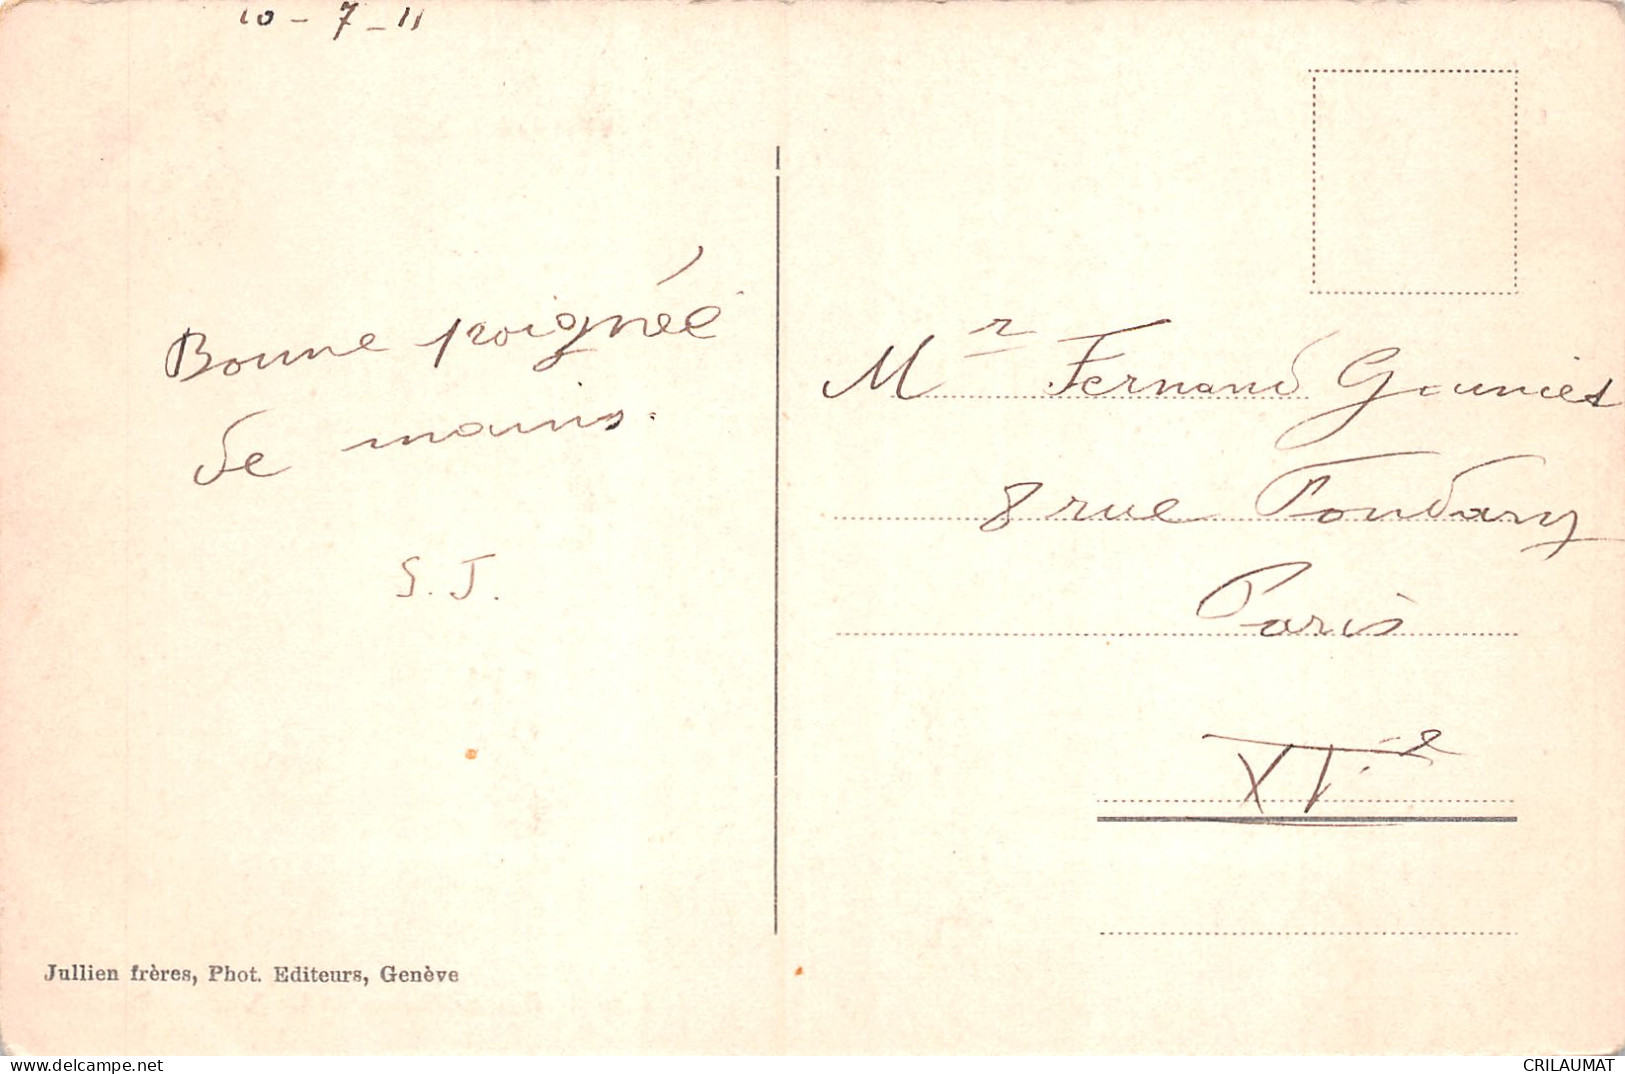 10 - 7 - 11
Bonne poignée
de mains.
S. J.
Mr Fernand
8 rue Fondary
Paris
XVe
Jullien frères, Phot. Editeurs, Genève
www.delcampe.net
CRILAUMAT